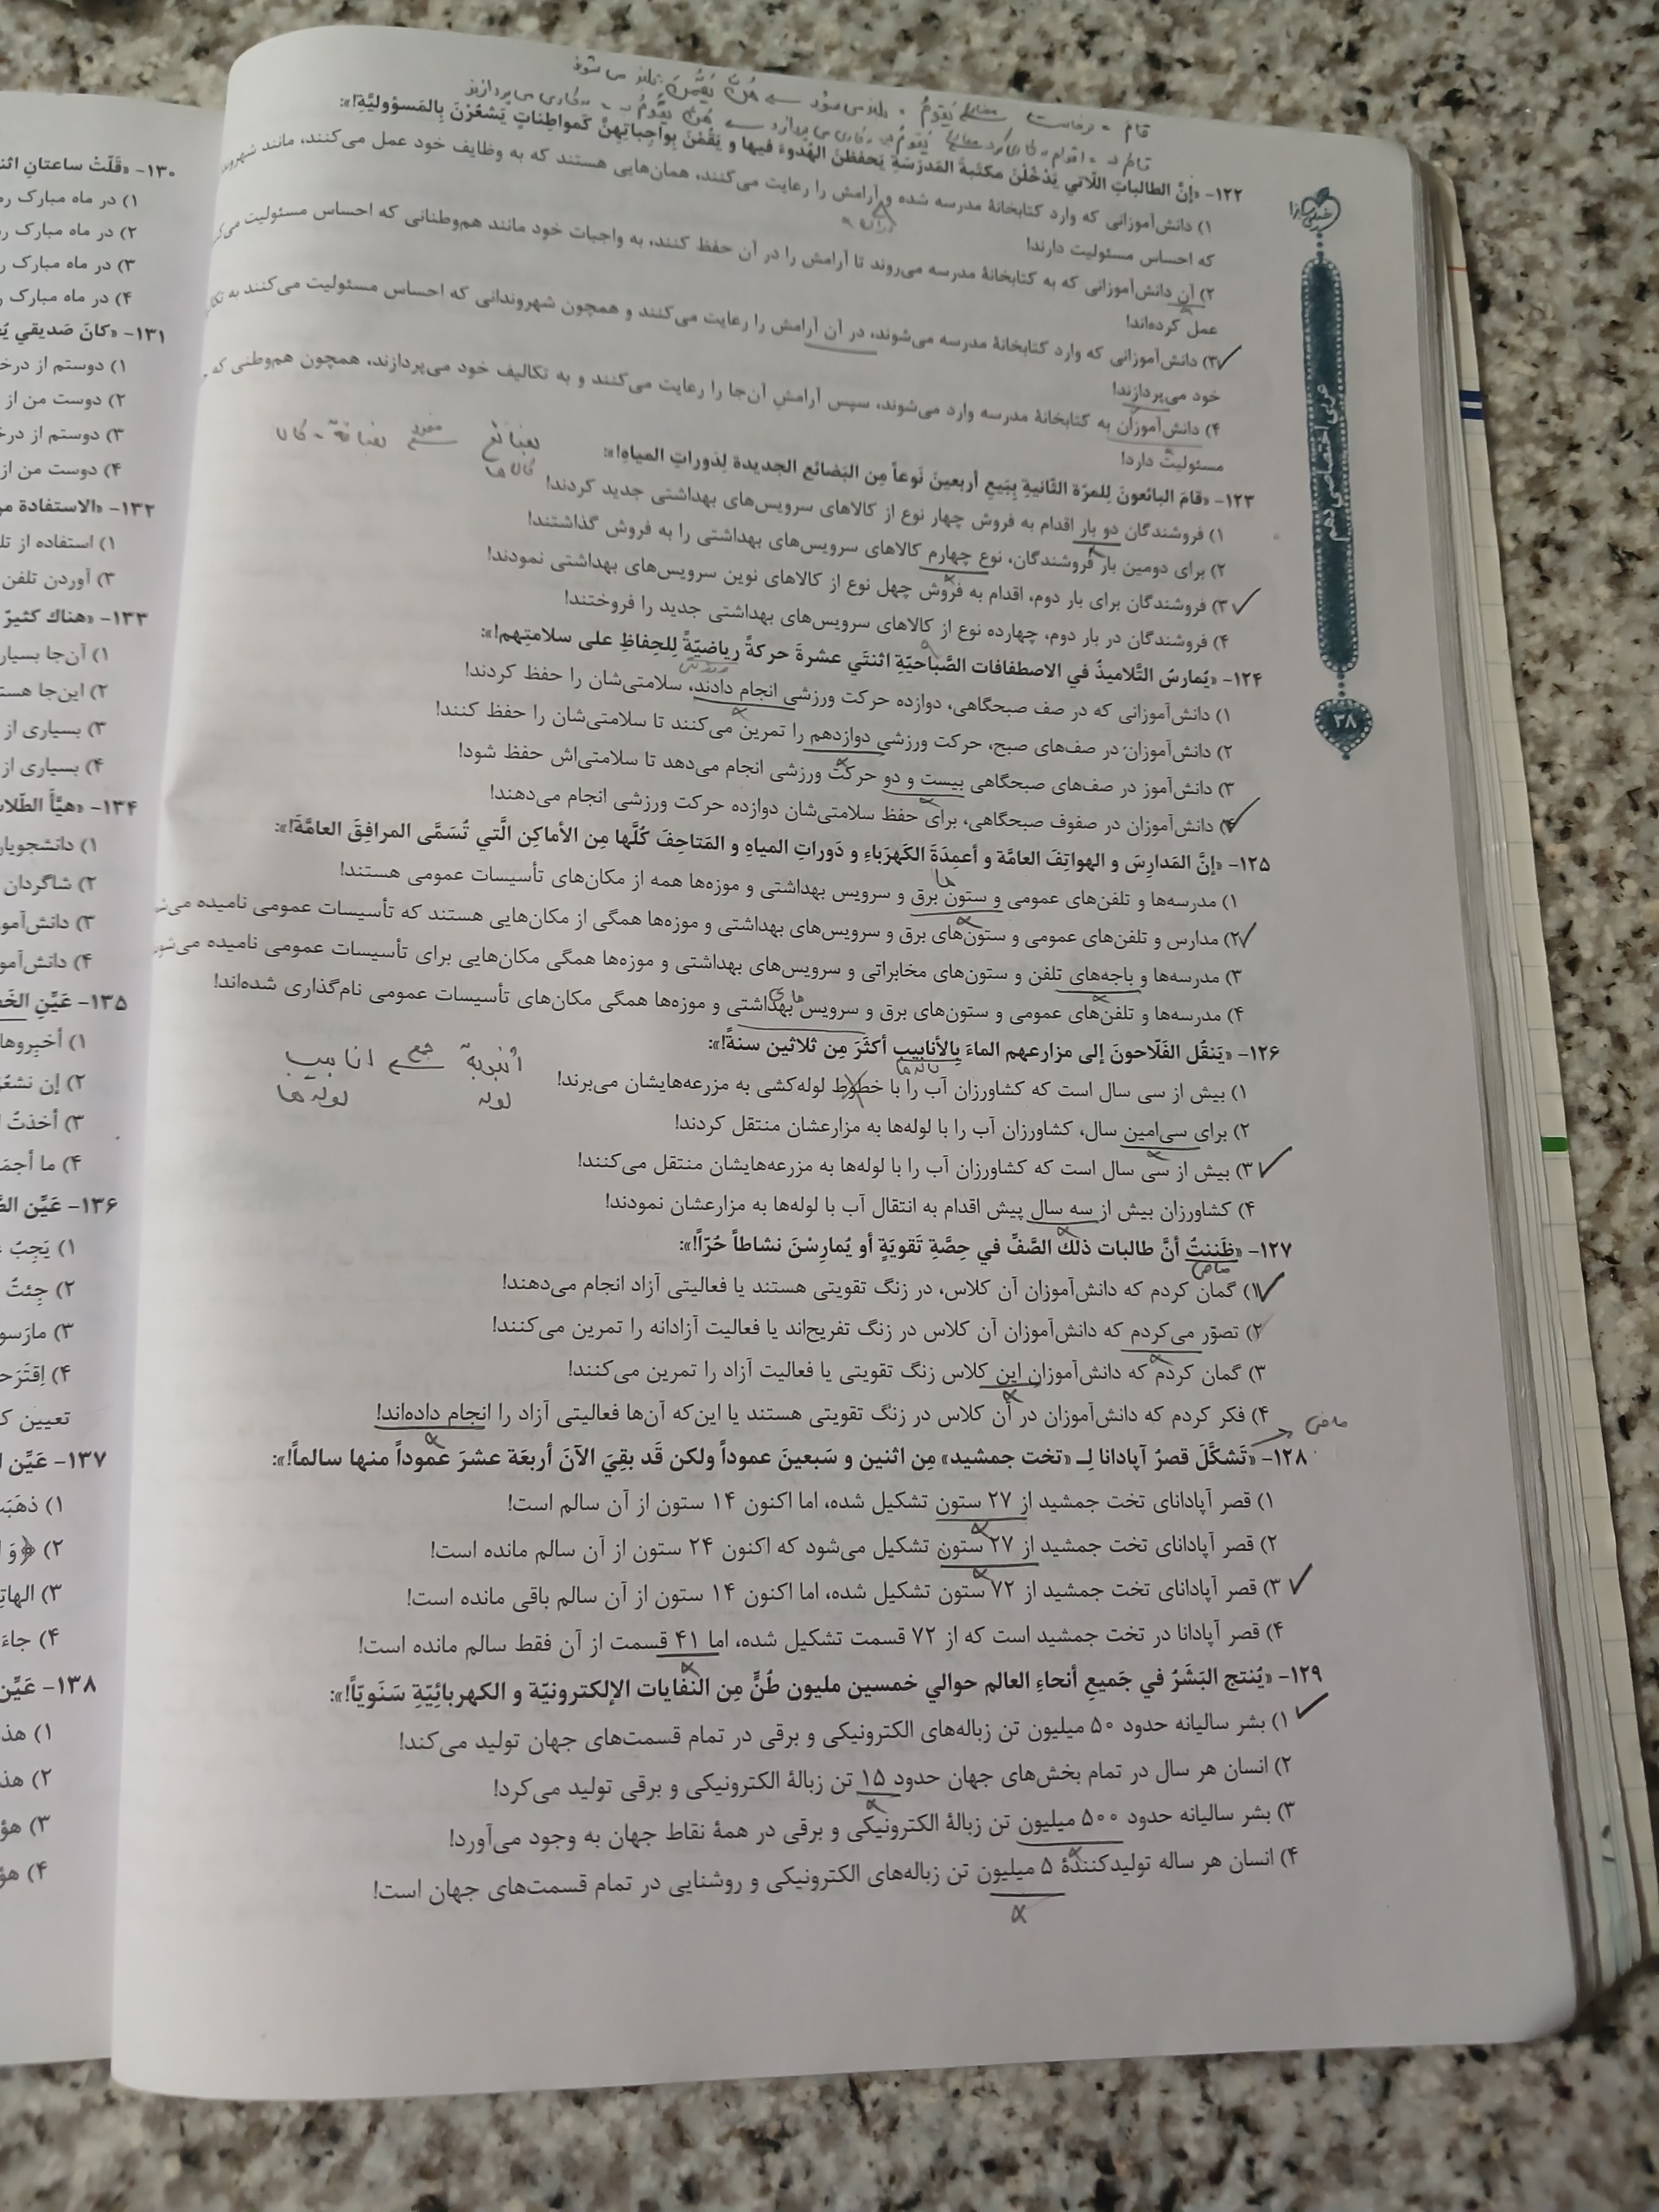 قامَ = برخاست مضارع يَقومُ = بلند می‌شود ← هُنَّ يَقُمْنَ: بلند می‌شوند
قام بـ = اقدام کاری کرد مضارع يَقومُ بـ = کاری می‌پردازد ← هُنَّ يَقُمْنَ بـ = کاری می‌پردازند
۱۲۲- «إنَّ الطالباتِ اللّاتي يَدْخُلْنَ مكتبةَ المَدرَسَةِ يَحفظنَ الهُدوءَ فيها و يَقُمْنَ بِواجِباتِهِنَّ كَمواطِناتٍ يَشعُرْنَ بِالمَسؤوليَّةِ!»:
۱) دانش‌آموزانی که وارد کتابخانهٔ مدرسه شده و آرامش را رعایت می‌کنند، همان‌هایی هستند که به وظایف خود عمل می‌کنند، مانند
که احساس مسئولیت دارند!
در آن
۲) آن دانش‌آموزانی که به کتابخانهٔ مدرسه می‌روند تا آرامش را در آن حفظ کنند، به واجبات خود مانند هم‌وطنانی که احساس مسئولیت
عمل کرده‌اند!
۳) دانش‌آموزانی که وارد کتابخانهٔ مدرسه می‌شوند، در آن آرامش را رعایت می‌کنند و همچون شهروندانی که احساس مسئولیت می‌کنند به
خود می‌پردازند!
۴) دانش‌آموزان به کتابخانهٔ مدرسه وارد می‌شوند، سپس آرامشِ آن‌جا را رعایت می‌کنند و به تکالیف خود می‌پردازند، همچون هم‌وطنی که
مسئولیت دارد!
بضائع مفرد ← بضاعة = کالا
کالاها
۱۲۳- «قامَ البائعونَ لِلمرّة الثّانيةِ بِبَيعِ أربعينَ نَوعاً مِن البَضائع الجديدة لِدَوراتِ المياهِ!»:
۱) فروشندگان دو بار اقدام به فروش چهار نوع از کالاهای سرویس‌های بهداشتی جدید کردند!
۲) برای دومین بار فروشندگان، نوع چهارم کالاهای سرویس‌های بهداشتی را به فروش گذاشتند!
۳) فروشندگان برای بار دوم، اقدام به فروش چهل نوع از کالاهای نوین سرویس‌های بهداشتی نمودند!
۴) فروشندگان در بار دوم، چهارده نوع از کالاهای سرویس‌های بهداشتی جدید را فروختند!
۱۲۴- «يُمارسُ التَّلاميذُ في الاصطفافات الصَّباحيّةِ اثنتَي عشرةَ حركةً رياضيّةً لِلحِفاظِ على سلامتِهم!»:
ورزشی
۱) دانش‌آموزانی که در صف صبحگاهی، دوازده حرکت ورزشی انجام دادند، سلامتی‌شان را حفظ کردند!
۲) دانش‌آموزان در صف‌های صبح، حرکت ورزشی دوازدهم را تمرین می‌کنند تا سلامتی‌شان را حفظ کنند!
۳) دانش‌آموز در صف‌های صبحگاهی بیست و دو حرکت ورزشی انجام می‌دهد تا سلامتی‌اش حفظ شود!
۴) دانش‌آموزان در صفوف صبحگاهی، برای حفظ سلامتی‌شان دوازده حرکت ورزشی انجام می‌دهند!
۱۲۵- «إنَّ المَدارِسَ و الهواتِفَ العامَّة و أعمِدَةَ الكَهرَباءِ و دَوراتِ المياهِ و المَتاحِفَ كُلَّها مِن الأماكِن الَّتي تُسَمَّى المرافِقَ العامَّةَ!»:
ها
۱) مدرسه‌ها و تلفن‌های عمومی و ستون برق و سرویس بهداشتی و موزه‌ها همه از مکان‌های تأسیسات عمومی هستند!
۲) مدارس و تلفن‌های عمومی و ستون‌های برق و سرویس‌های بهداشتی و موزه‌ها همگی از مکان‌هایی هستند که تأسیسات عمومی نامیده
۳) مدرسه‌ها و باجه‌های تلفن و ستون‌های مخابراتی و سرویس‌های بهداشتی و موزه‌ها همگی مکان‌هایی برای تأسیسات عمومی نامیده
های
۴) مدرسه‌ها و تلفن‌های عمومی و ستون‌های برق و سرویس بهداشتی و موزه‌ها همگی مکان‌های تأسیسات عمومی نام‌گذاری شده‌اند!
اُنبوبة جمع ← انابیب
لوله لوله‌ها
۱۲۶- «يَنقُل الفَلّاحونَ إلى مزارعهم الماءَ بِالأنابيبِ أكثَرَ مِن ثلاثين سنةً!»:
با لوله‌ها
۱) بیش از سی سال است که کشاورزان آب را با خطوط لوله‌کشی به مزرعه‌هایشان می‌برند!
۲) برای سی‌امین سال، کشاورزان آب را با لوله‌ها به مزارعشان منتقل کردند!
۳) بیش از سی سال است که کشاورزان آب را با لوله‌ها به مزرعه‌هایشان منتقل می‌کنند!
۴) کشاورزان بیش از سه سال پیش اقدام به انتقال آب با لوله‌ها به مزارعشان نمودند!
۱۲۷- «ظَننتُ أنَّ طالبات ذلكَ الصَّفِّ في حِصَّةِ تَقويَةٍ أو يُمارِسْنَ نشاطاً حُرّاً!»:
ماضی
۱) گمان کردم که دانش‌آموزان آن کلاس، در زنگ تقویتی هستند یا فعالیتی آزاد انجام می‌دهند!
۲) تصوّر می‌کردم که دانش‌آموزان آن کلاس در زنگ تفریح‌اند یا فعالیت آزادانه را تمرین می‌کنند!
۳) گمان کردم که دانش‌آموزان این کلاس زنگ تقویتی یا فعالیت آزاد را تمرین می‌کنند!
۴) فکر کردم که دانش‌آموزان در آن کلاس در زنگ تقویتی هستند یا این‌که آن‌ها فعالیتی آزاد را انجام داده‌اند!
ماضی
۱۲۸- «تَشكَّلَ قصرُ آپادانا لِـ «تخت جمشید» مِن اثنين و سَبعينَ عموداً ولكن قَد بقِيَ الآنَ أربعَة عشرَ عموداً منها سالماً!»:
۱) قصر آپادانای تخت جمشید از ۲۷ ستون تشکیل شده، اما اکنون ۱۴ ستون از آن سالم است!
۲) قصر آپادانای تخت جمشید از ۲۷ ستون تشکیل می‌شود که اکنون ۲۴ ستون از آن سالم مانده است!
۳) قصر آپادانای تخت جمشید از ۷۲ ستون تشکیل شده، اما اکنون ۱۴ ستون از آن سالم باقی مانده است!
۴) قصر آپادانا در تخت جمشید است که از ۷۲ قسمت تشکیل شده، اما ۴۱ قسمت از آن فقط سالم مانده است!
۱۲۹- «يُنتج البَشَرُ في جَميعِ أنحاءِ العالم حوالي خمسين مليون طُنٍّ مِن النُّفايات الإلكترونيّة و الكهربائِيّةِ سَنَويّاً!»:
۱) بشر سالیانه حدود ۵۰ میلیون تن زباله‌های الکترونیکی و برقی در تمام قسمت‌های جهان تولید می‌کند!
۲) انسان هر سال در تمام بخش‌های جهان حدود ۱۵ تن زبالهٔ الکترونیکی و برقی تولید می‌کرد!
۳) بشر سالیانه حدود ۵۰۰ میلیون تن زبالهٔ الکترونیکی و برقی در همهٔ نقاط جهان به وجود می‌آورد!
۴) انسان هر ساله تولیدکنندهٔ ۵ میلیون تن زباله‌های الکترونیکی و روشنایی در تمام قسمت‌های جهان است!
خیلی سبز
عربی اختصاصی دهم
۳۸
۱۳۰- «قَلّتْ ساعتانِ
۱) در ماه مبارک
۲) در ماه مبارک
۳) در ماه مبارک
۴) در ماه مبارک
۱۳۱- «كانَ صَديقي
۱) دوستم از
۲) دوست من از
۳) دوستم از
۴) دوست من از
۱۳۲- «الاستفادة
۱) استفاده از
۳) آوردن تلفن
۱۳۳- «هناك كثيرٌ
۱) آن‌جا بسیار
۲) این‌جا
۳) بسیاری از
۴) بسیاری از
۱۳۴- «هيَّأَ
۱)
۲) شاگردان
۳)
۴)
۱۳۵- عَيِّنِ
۱) أخبِروها
۲) إن
۳) أخذتُ
۴) ما
۱۳۶- عَيِّن
۱) يَجِبُ
۲) جِئتُ
۳)
۴)
تعیین
۱۳۷- عَيِّن
۱)
۲) ﴿وَ
۳)
۴)
۱۳۸- عَيِّن
۱)
۲)
۳)
۴)